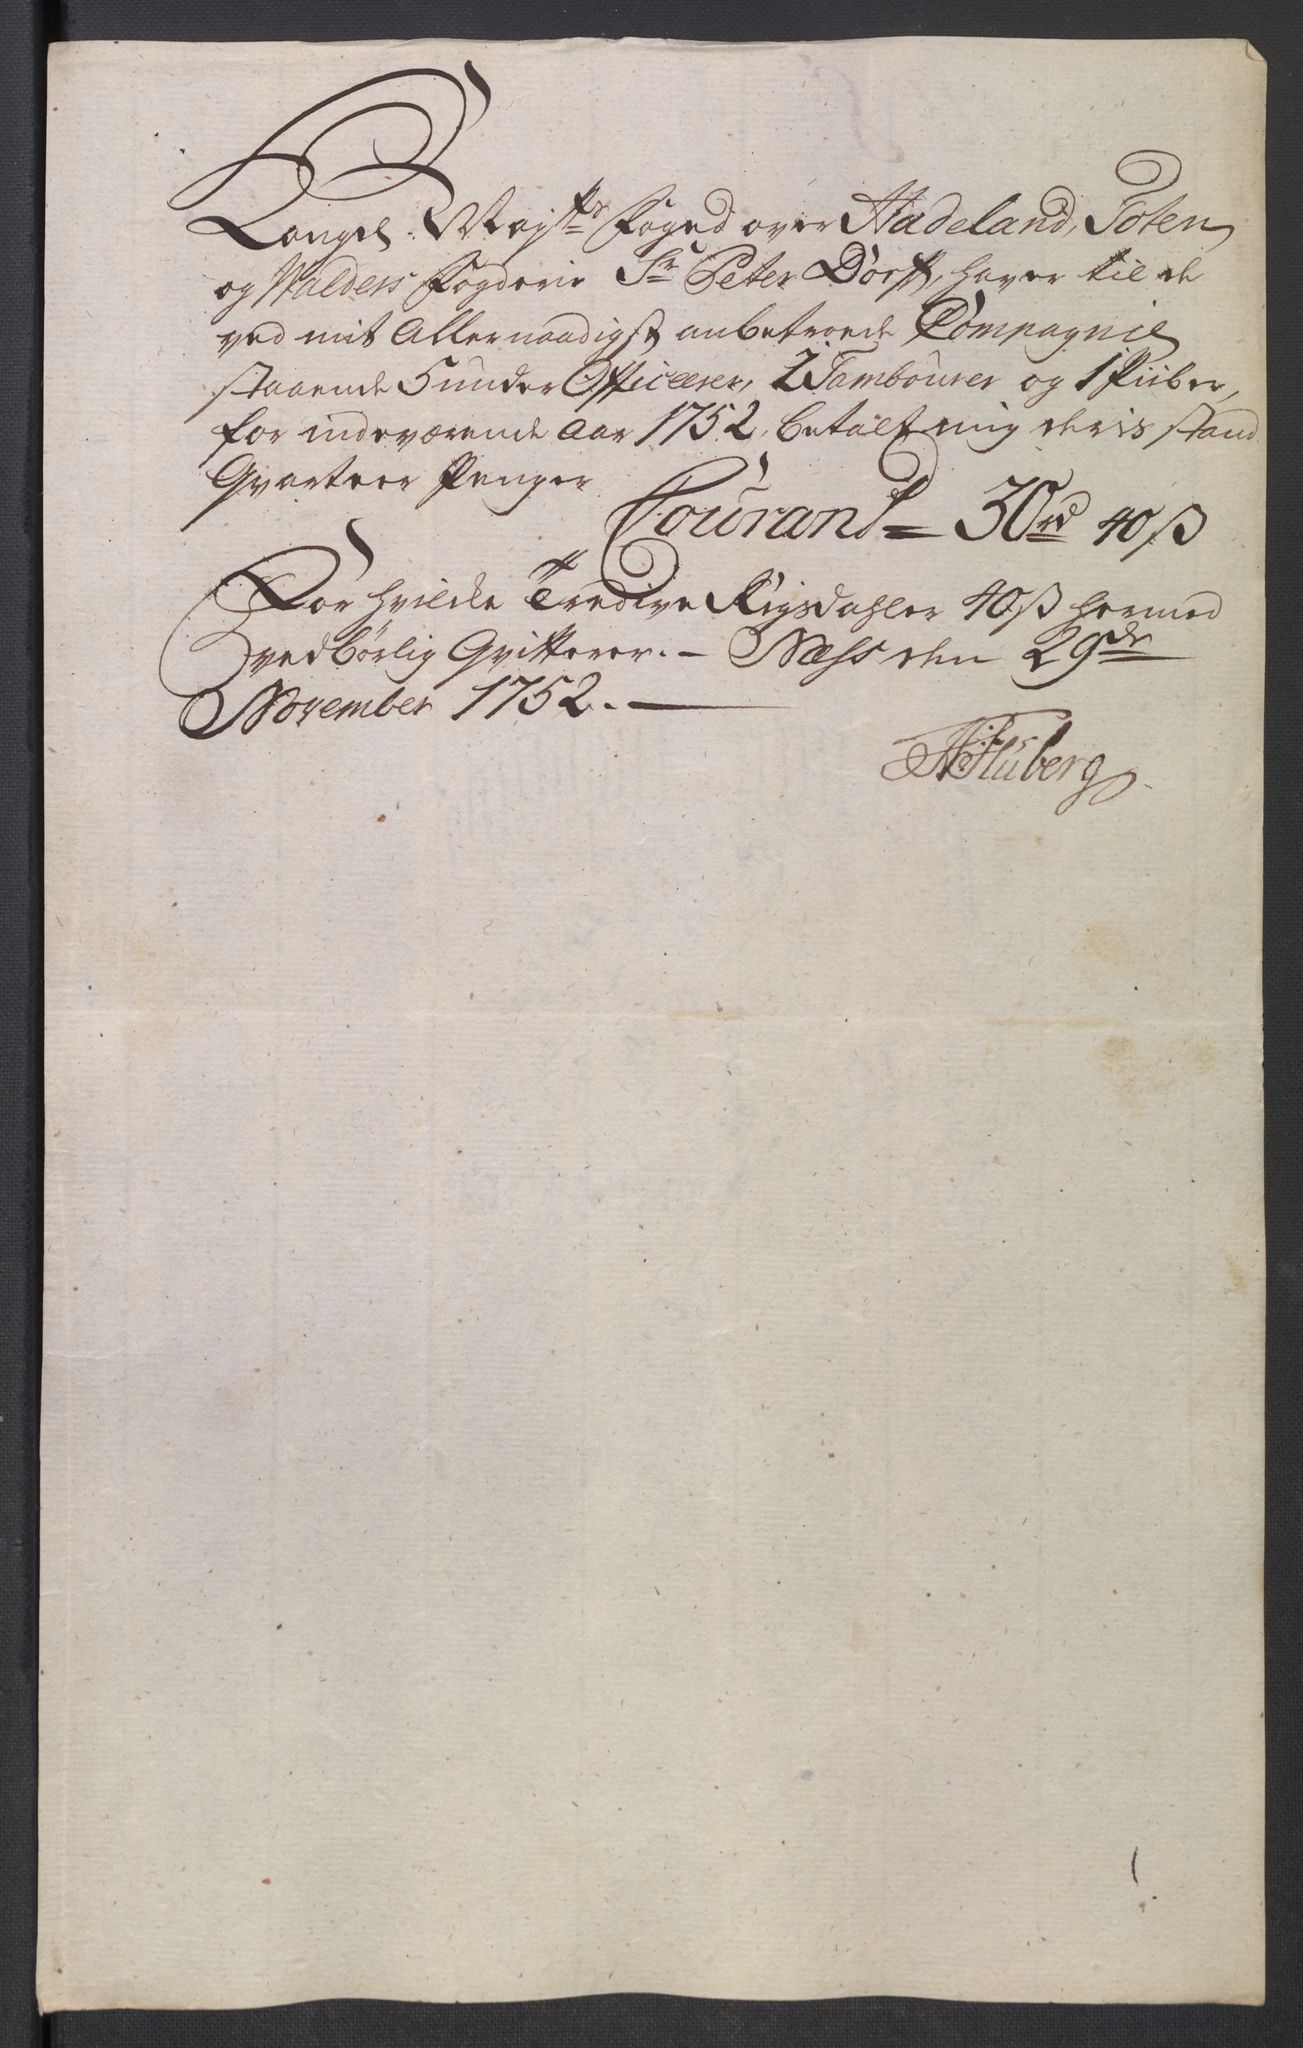 Kongel: Mayts Foged over Hadeland, Toten
og Walders Fogderie Sr Peter Dorph, haver til de
ved mit Allernaadigst anbetroede Compagnie
staaende 5 under Officerer, 2 Tambourer og 1 Piiber,
for indeværende Aar 1752, betalt mig deris stand
Qvarteer Penger
Courant = 30 rd 40 ß
For hvilcke Tredive Rigsdahler 40 ß hermed
vedbørlig Qvitterer. - Næss den 29de
November 1752. —
Huberg